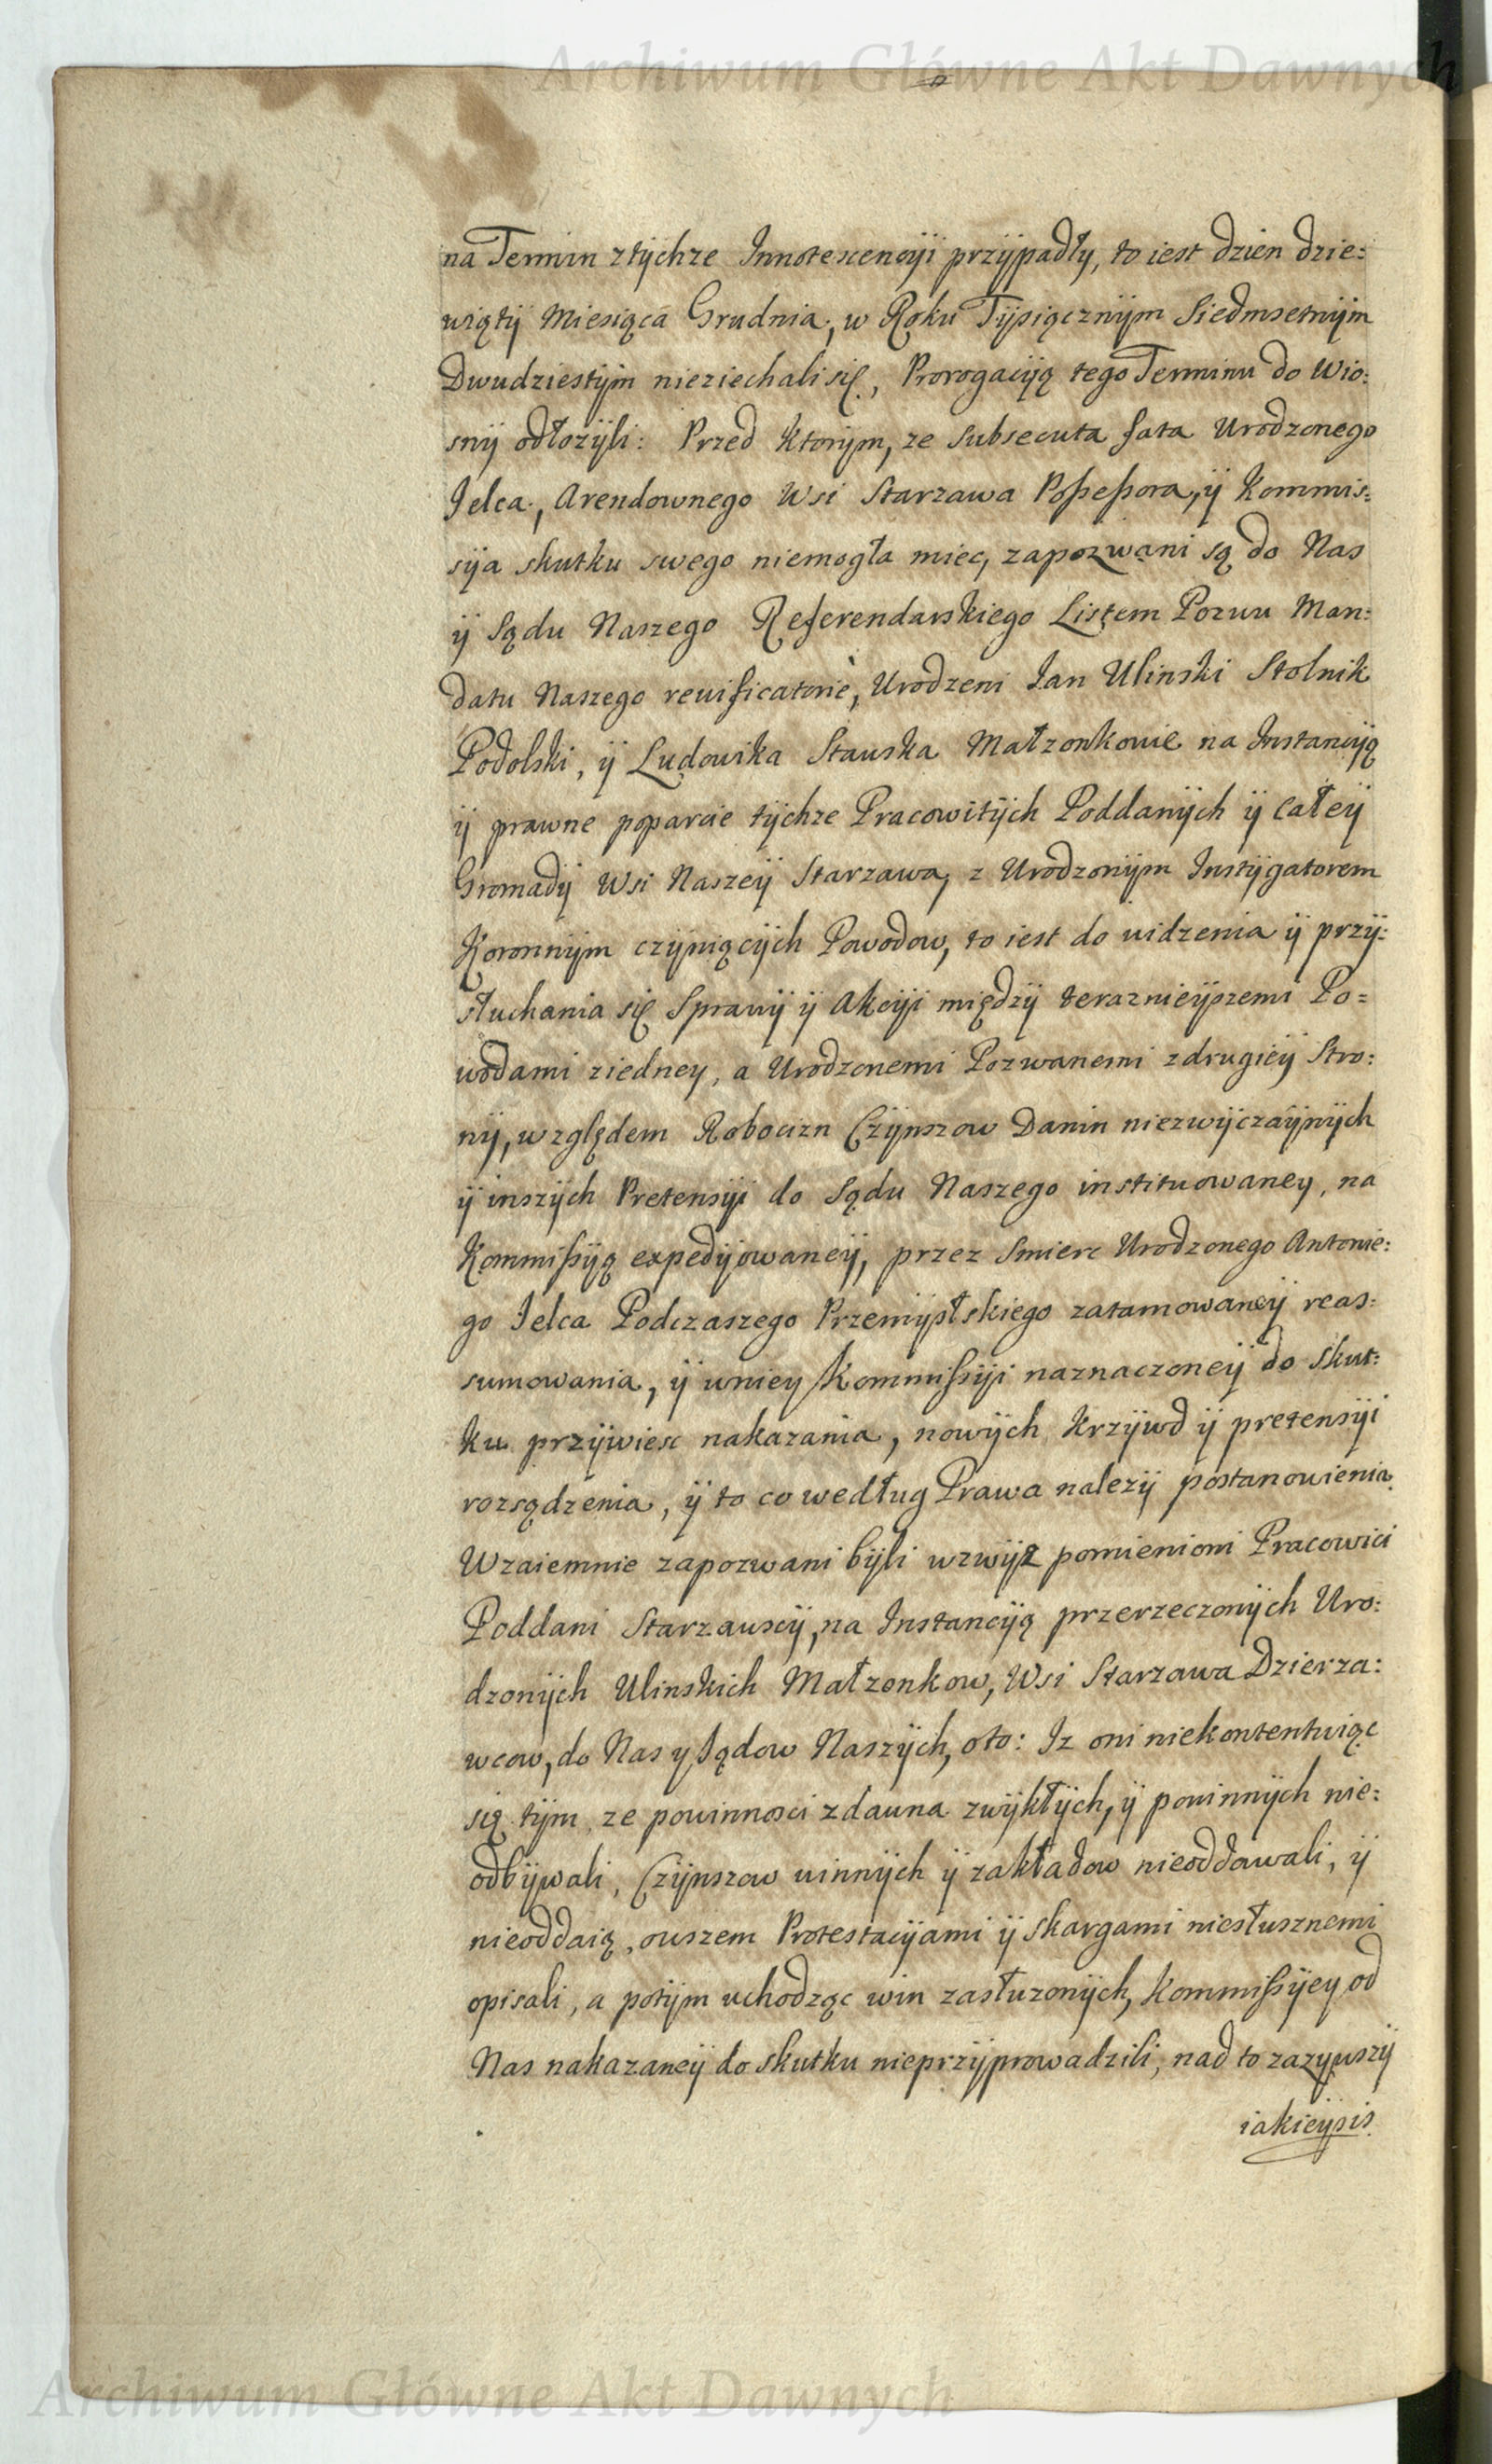 Archiwum Główne Akt Dawnych
na Termin ztÿchze Innotescencÿi przÿpadłÿ, to iest dzien dzie:
wiątÿ Miesiąca Grudnia, w Roku Tÿsiącznÿm Siedmsetnÿm
Dwudziestÿm nieziechali się, Prorogacÿią tego Terminu do Wio:
snÿ odłozÿli: Przed ktorÿm, ze Subsecuta fata Urodzonego
Jelca, Arendownego Wsi Starzawa Possessora, ÿ Kommis:
sÿa skutku swego niemogła miec, zapozwani są do Nas
ÿ Sądu Naszego Referendarskiego Listem Pozwu Man:
datu Naszego reuificatorie, Urodzeni Jan Ulinski Stolnik
Podolski, ÿ Ludowika Stauska Małzonkowie na Instancÿą
ÿ prawne poparcie tÿchze Pracowitÿch Poddanÿch ÿ Całeÿ
Gromadÿ Wsi Naszeÿ Starzawa, z Urodzonÿm Instÿgatorem
Koronnÿm czÿniącÿch Powodow, to iest do uidzenia ÿ przÿ:
słuchania się Sprawÿ ÿ Akcÿi międzÿ teraznieÿszemi Po=
wodami ziedney, a Urodzonemi Pozwanemi zdrugieÿ Stro:
nÿ, względem Robocizn Czÿnszow Danin niezwÿczaÿnÿch
ÿ inszÿch Pretensÿi do Sądu Naszego instituowaney, na
Kommissÿą expedÿowaneÿ, przez Smierc Urodzonego Antonie:
go Jelca Podczaszego Przemÿslskiego zatamowaneÿ reas:
sumowania, ÿ wniey Kommissÿi naznaczoneÿ do Skut:
ku przÿwiesc nakazania, nowÿch Krzÿwd ÿ pretensÿi
rozsądzenia, ÿ to co według Prawa nalezÿ postanowienia.
Wzaiemnie zapozwani bÿli wzwÿz pomienioni Pracowici
Poddani Starzauscÿ, na Instancÿą przerzeczonÿch Uro:
dzonÿch Ulinskich Małzonkow, Wsi Starzawa Dzierza:
wcow, do Nas y Sądow Naszÿch, oto: Iz oni niekontentuiąc
się tÿm, ze powinnosci zdauna zwÿkłÿch, ÿ powinnÿch nie:
odbÿwali, Czÿnszow uinnÿch ÿ zakładow nieoddawali, ÿ
nieoddaią, owszem Protestacÿami ÿ Skargami niesłusznemi
opisali, a potÿm uchodząc win zasłuzonÿch, Kommissÿey od
Nas nakazaneÿ do skutku nieprzÿprowadzili, nad to zazywszÿ
iakieÿsis
Archiwum Główne Akt Dawnych